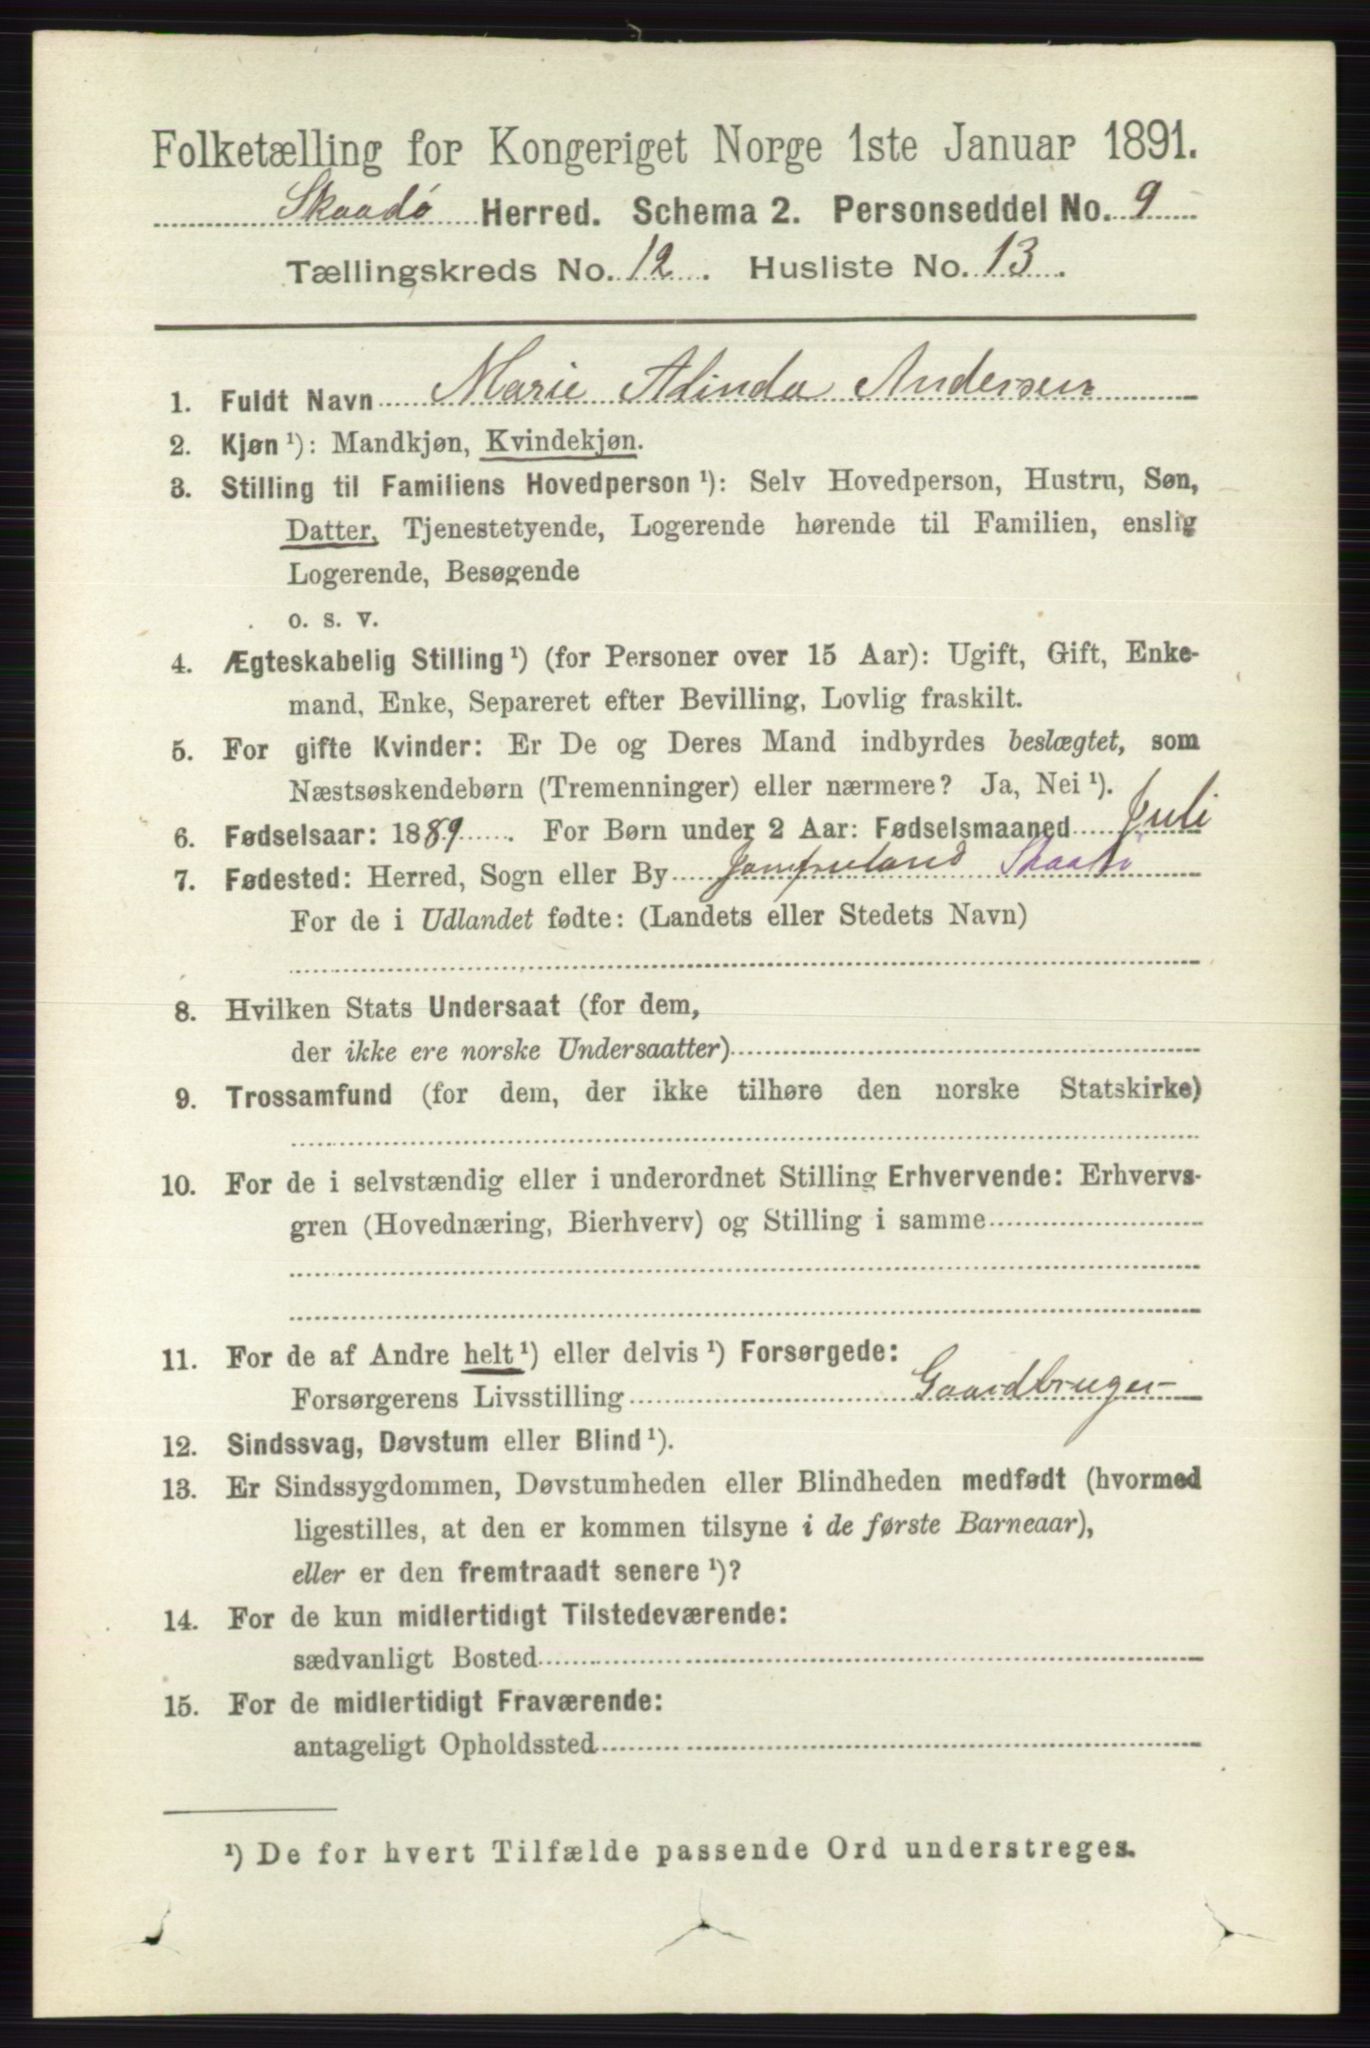 Folketælling for Kongeriget Norge 1ste Januar 1891.
Skaadø Herred. Schema 2. Personseddel No. 9
Tællingskreds No. 12. Husliste No. 13.
1. Fuldt Navn Marie Alinda Andersen
2. Kjøn ¹): Mandkjøn, Kvindekjøn.
3. Stilling til Familiens Hovedperson ¹): Selv Hovedperson, Hustru, Søn,
Datter, Tjenestetyende, Logerende hørende til Familien, enslig
Logerende, Besøgende
o. s. v.
4. Ægteskabelig Stilling ¹) (for Personer over 15 Aar): Ugift, Gift, Enke-
mand, Enke, Separeret efter Bevilling, Lovlig fraskilt.
5. For gifte Kvinder: Er De og Deres Mand indbyrdes beslægtet, som
Næstsøskendebørn (Tremenninger) eller nærmere? Ja, Nei ¹).
6. Fødselsaar: 1889. For Børn under 2 Aar: Fødselsmaaned Juli
7. Fødested: Herred, Sogn eller By Jomfruland Skaatø
For de i Udlandet fødte: (Landets eller Stedets Navn)
8. Hvilken Stats Undersaat (for dem,
der ikke ere norske Undersaatter)
9. Trossamfund (for dem, der ikke tilhøre den norske Statskirke)
10. For de i selvstændig eller i underordnet Stilling Erhvervende: Erhvervs-
gren (Hovednæring, Bierhverv) og Stilling i samme
11. For de af Andre helt ¹) eller delvis ¹) Forsørgede:
Forsørgerens Livsstilling Gaardbruger
12. Sindssvag, Døvstum eller Blind ¹).
13. Er Sindssygdommen, Døvstumheden eller Blindheden medfødt (hvormed
ligestilles, at den er kommen tilsyne i de første Barneaar),
eller er den fremtraadt senere ¹)?
14. For de kun midlertidigt Tilstedeværende:
sædvanligt Bosted
15. For de midlertidigt Fraværende:
antageligt Opholdssted
¹) De for hvert Tilfælde passende Ord understreges.